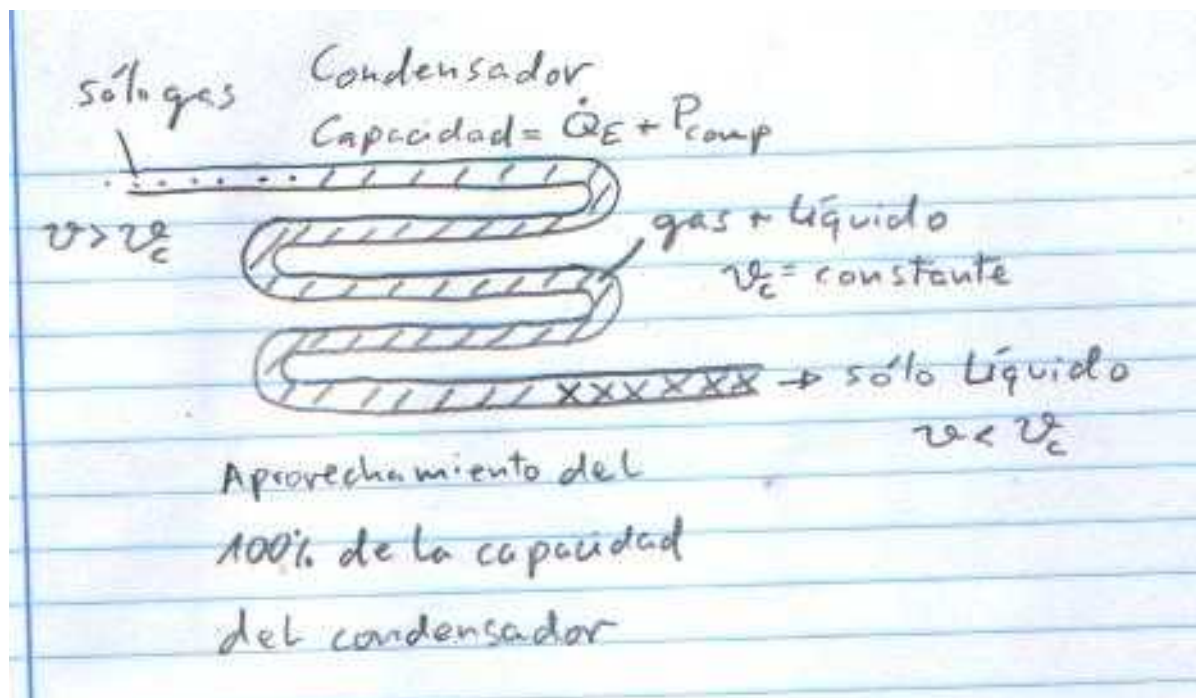 Condensador
sólo gas
Capacidad = Q̇E + Pcomp
v > vc
gas + Líquido
vc = constante
xxxxxx → sólo Líquido
v < vc
Aprovechamiento del
100% de la capacidad
del condensador